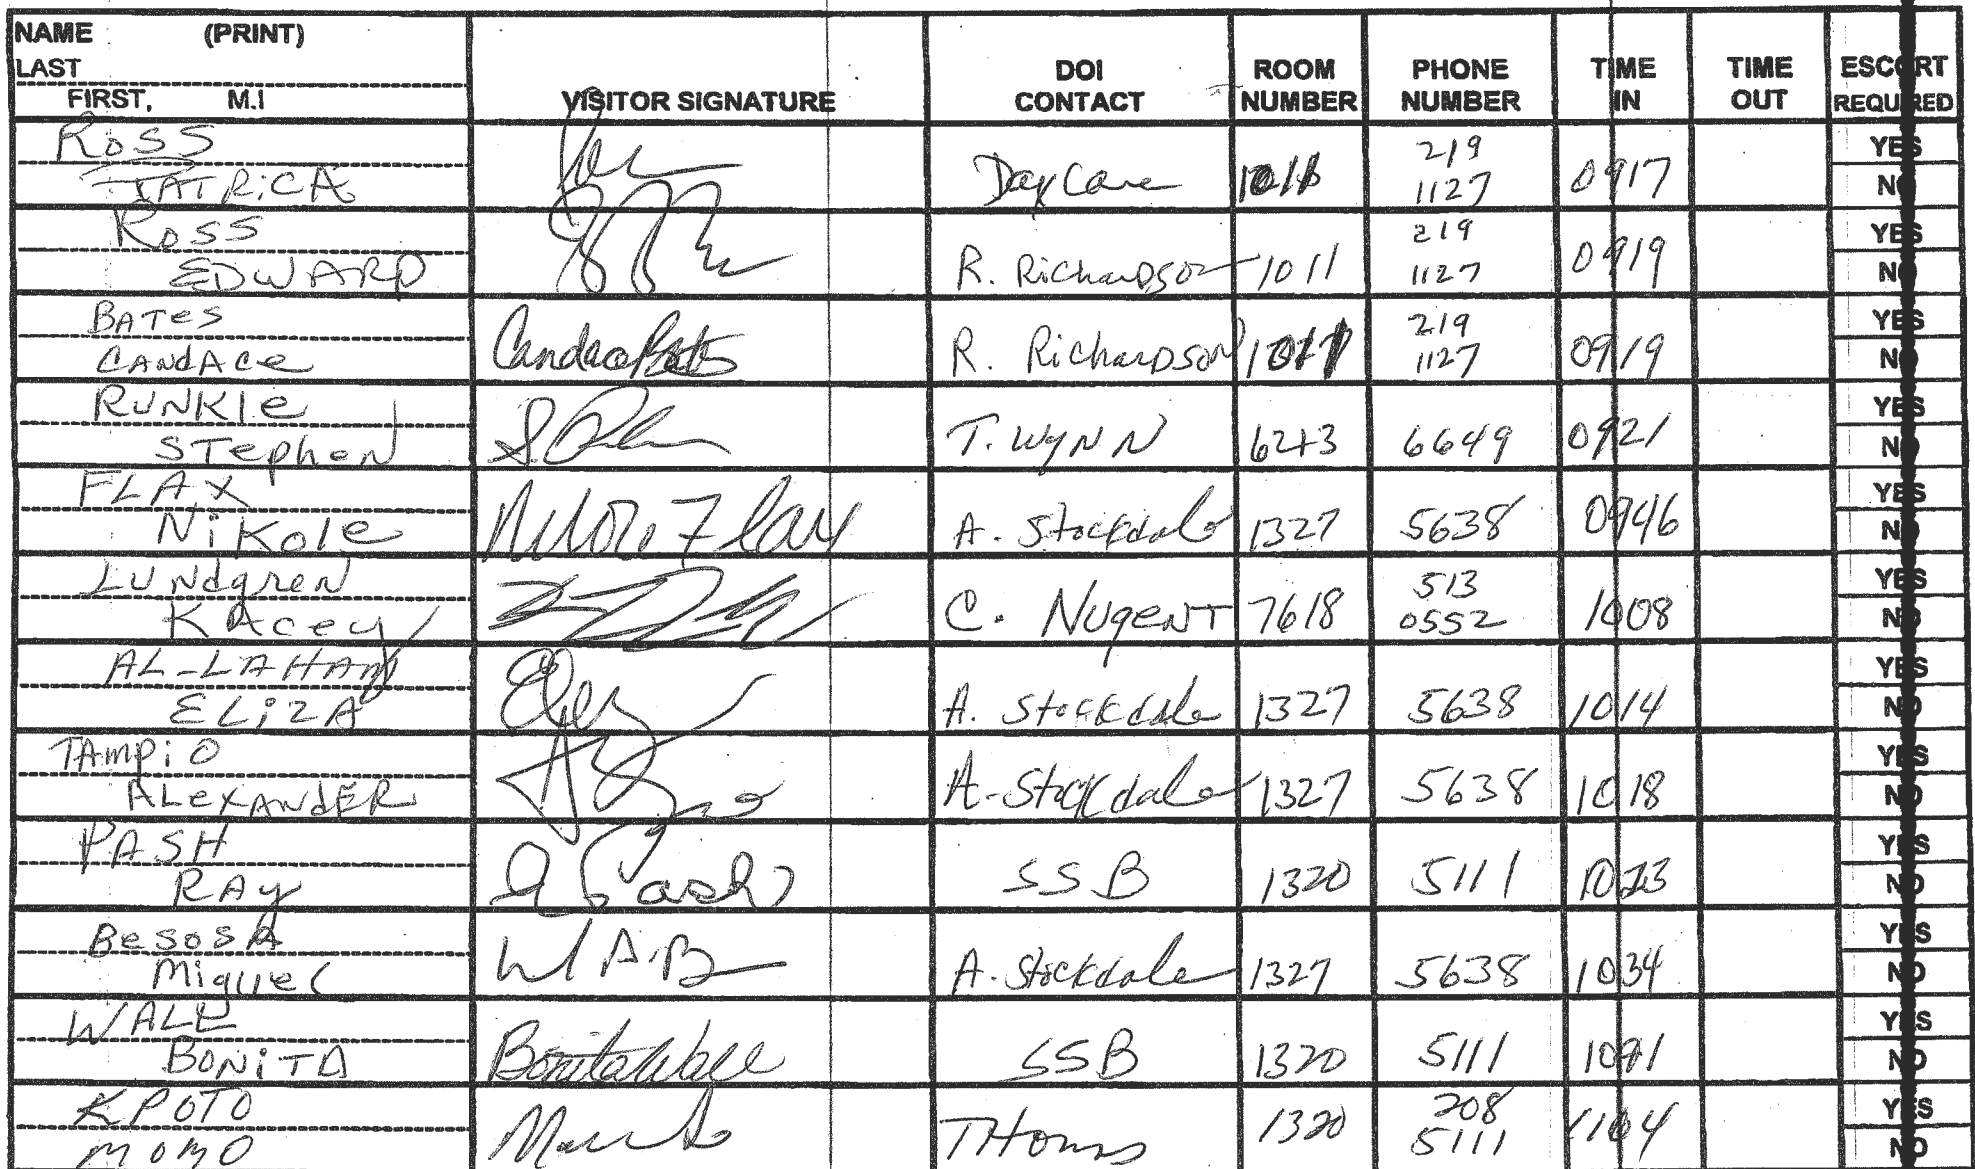 NAME (PRINT)
LAST
FIRST, M.I
VISITOR SIGNATURE
DOI CONTACT
ROOM NUMBER
PHONE NUMBER
TIME IN
TIME OUT
ESCORT REQUIRED
ROSS
PATRICA DayCare 1011 219 1127 0917 YES NO
ROSS
EDWARD R. RichaRDSON 1011 219 1127 0919 YES NO
BATes
CANdAce Candace Bates R. RichaRDSON 1011 219 1127 0919 YES NO
RUNKle
STepheN T. WyNN 6243 6649 0921 YES NO
FLAX
NiKole A. Stockdale 1327 5638 0946 YES NO
LUNdgreN
KAcey C. NugeNT 7618 513 0552 1008 YES NO
AL-LAHAM
ELiZA A. Stockdale 1327 5638 1014 YES NO
TAmpiO
ALexANdER A. Stockdale 1327 5638 1018 YES NO
PASH
RAy SSB 1320 5111 1023 YES NO
BesosA
Miguel A. Stockdale 1327 5638 1034 YES NO
WALL
BONiTA Bonita Wall SSB 1320 5111 YES NO
KPOTO
MOMO THOMAS 1320 208 5111 1104 YES NO